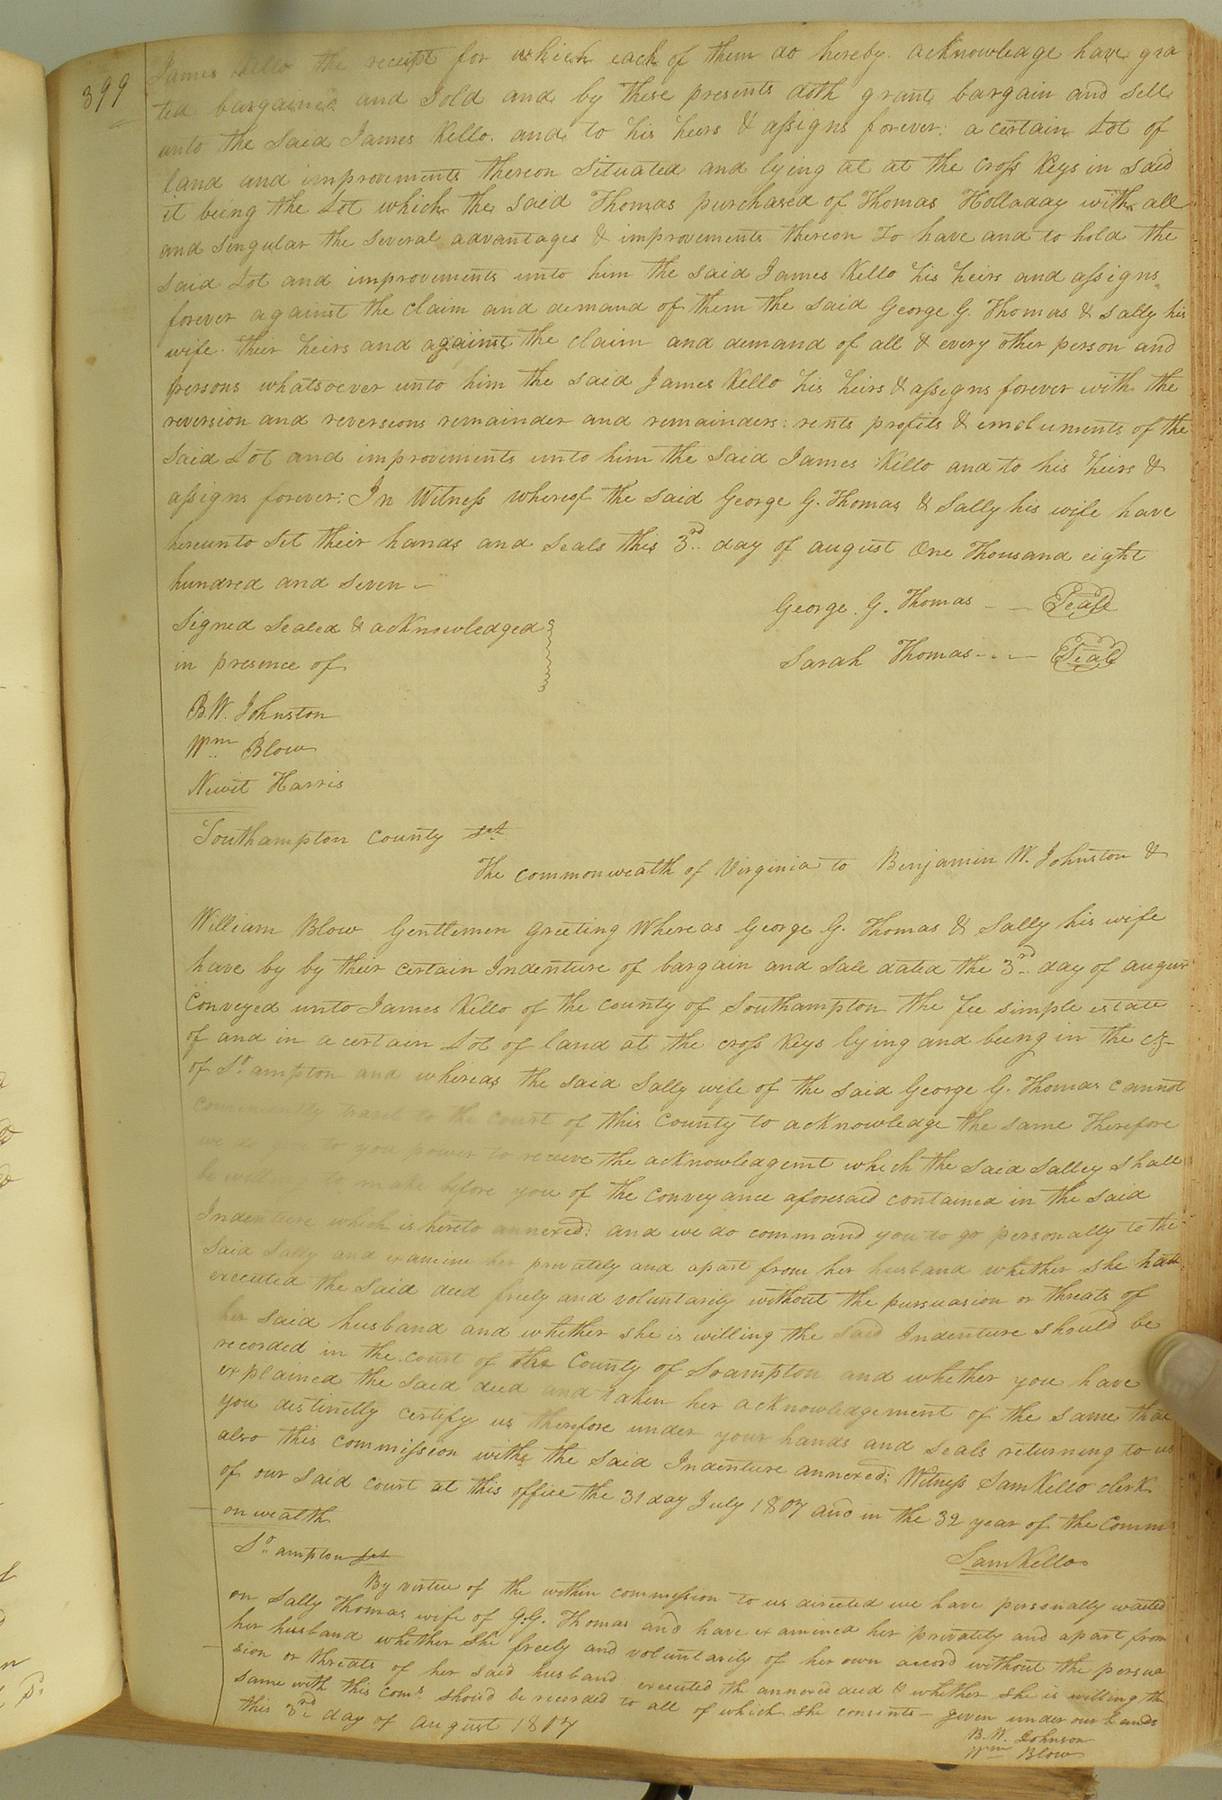 399
James Kello the receipt for which each of them do hereby acknowledge have gra
ted bargained and Sold and by these presents doth grant bargain and Sell
unto the Said James Kello. and to his heirs & assigns forever. a certain Lot of
land and improvements thereon Situated and lying at at the Cross Keys in said
it being the Lot which the said Thomas purchased of Thomas Holladay with all
and singular the several advantages & improvements thereon To have and to hold the
said Lot and improvements unto him the said James Kello his heirs and assigns
forever against the claim and demand of them the said George G. Thomas & Sally his
wife. their heirs and against the claim and demand of all & every other person and
persons whatsoever unto him the said James Kello his heirs & assigns forever with the
reversion and reversions remainder and remainders. rents profits & emoluments of the
Said Lot and improvements unto him the Said James Kello and to his heirs &
assigns forever. In Witness whereof the said George G. Thomas & Sally his wife have
hereunto Set their hands and seals this 3rd day of august One Thousand eight
hundred and Seven —
George. G. Thomas - — Seal
Signed Sealed & acknowledged
Sarah Thomas - - — Seal
in presence of
B.W. Johnston
Wm Blow
Newit Harris
Southampton County Sct
The commonwealth of Virginia to Benjamin W. Johnston &
William Blow Gentlemen Greeting Whereas George G. Thomas & Sally his wife
have by by their certain Indenture of bargain and Sale dated the 3rd day of augus
Conveyed unto James Kello of the county of Southampton the fee simple estate
of and in a certain Lot of land at the cross Keys lying and being in the
of So ampton and whereas the said Sally wife of the said George G. Thomas cannot
conveniently travel to the Court of this County to acknowledge the same Therefore
we do to you power to receive the acknowledgemt which the said Salley shall
be willing to make before you of the conveyance aforesaid contained in the said
Indenture which is hereto annexed. and we do command you to go personally to the
said Sally and examine her privately and apart from her husband whether she hath
executed the said deed freely and voluntarily without the persuasion or threats of
her said husband and whether she is willing the said Indenture should be
recorded in the court of the County of Soampton and whether you have
explained the said deed and taken her acknowledgement of the same that
you distinctly certify us therefore under your hands and seals returning to us
also this commission with the said Indenture annexed: Witness Sam Kello clerk
of our said court at this office the 31 day July 1807 and in the 32 year of the Comm
onwealth
Sam Kello
So ampton Sct
By virtue of the within commission to us directed we have personally waited
on Sally Thomas wife of G.G. Thomas and have examined her privately and apart from
her husband whether she freely and voluntarily of her own accord without the persua
sion or threats of her said husband executed the annexed deed & whether she is willing the
same with this coms should be recorded to all of which she consents — given under our hands
this 3rd day of august 1807
B.W. Johnson
Wm Blow